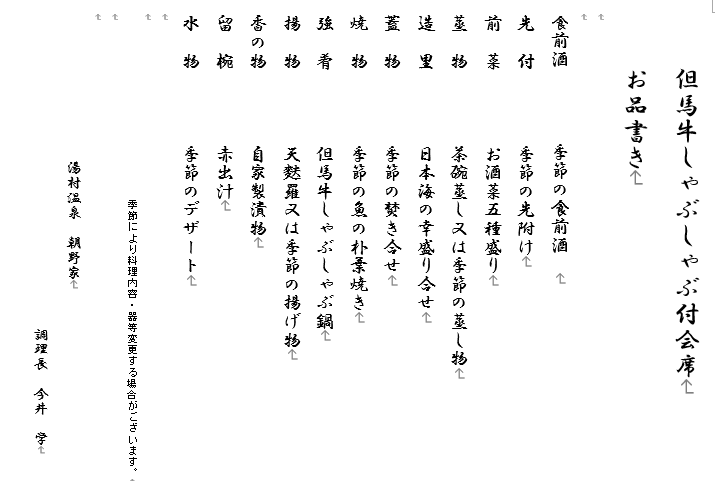 但馬牛しゃぶしゃぶ付会席
お品書き
食前酒 季節の食前酒
先付 季節の先附け
前菜 お酒菜五種盛り
蒸物 茶碗蒸し又は季節の蒸し物
造里 日本海の幸盛り合せ
蓋物 季節の焚き合せ
焼物 季節の魚の朴葉焼き
強肴 但馬牛しゃぶしゃぶ鍋
揚物 天麩羅又は季節の揚げ物
香の物 自家製漬物
留椀 赤出汁
水物 季節のデザート
季節により料理内容・器等変更する場合がございます。
湯村温泉 朝野家
調理長 今井 学